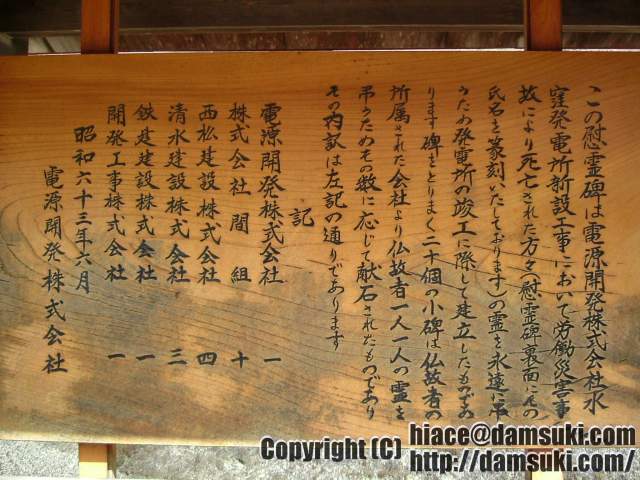 この慰霊碑は電源開発株式会社水
窪発電所新設工事において労働災害事
故により死亡された方々(慰霊碑裏面にその
氏名を篆刻いたしております)の霊を永遠に弔
うため発電所の竣工に際して建立したものであ
ります碑をとりまく二十個の小碑は仏故者の
所属された会社より仏故者一人一人の霊を
弔うためその数に応じて献石されたものであり
その内訳は左記の通りであります
記
電源開発株式会社 一
株式会社間組 十
西松建設株式会社 四
清水建設株式会社 三
鉄建建設株式会社 一
開発工事株式会社 一
昭和六十三年六月
電源開発株式会社
Copyright (C) hiace@damsuki.com
http://damsuki.com/